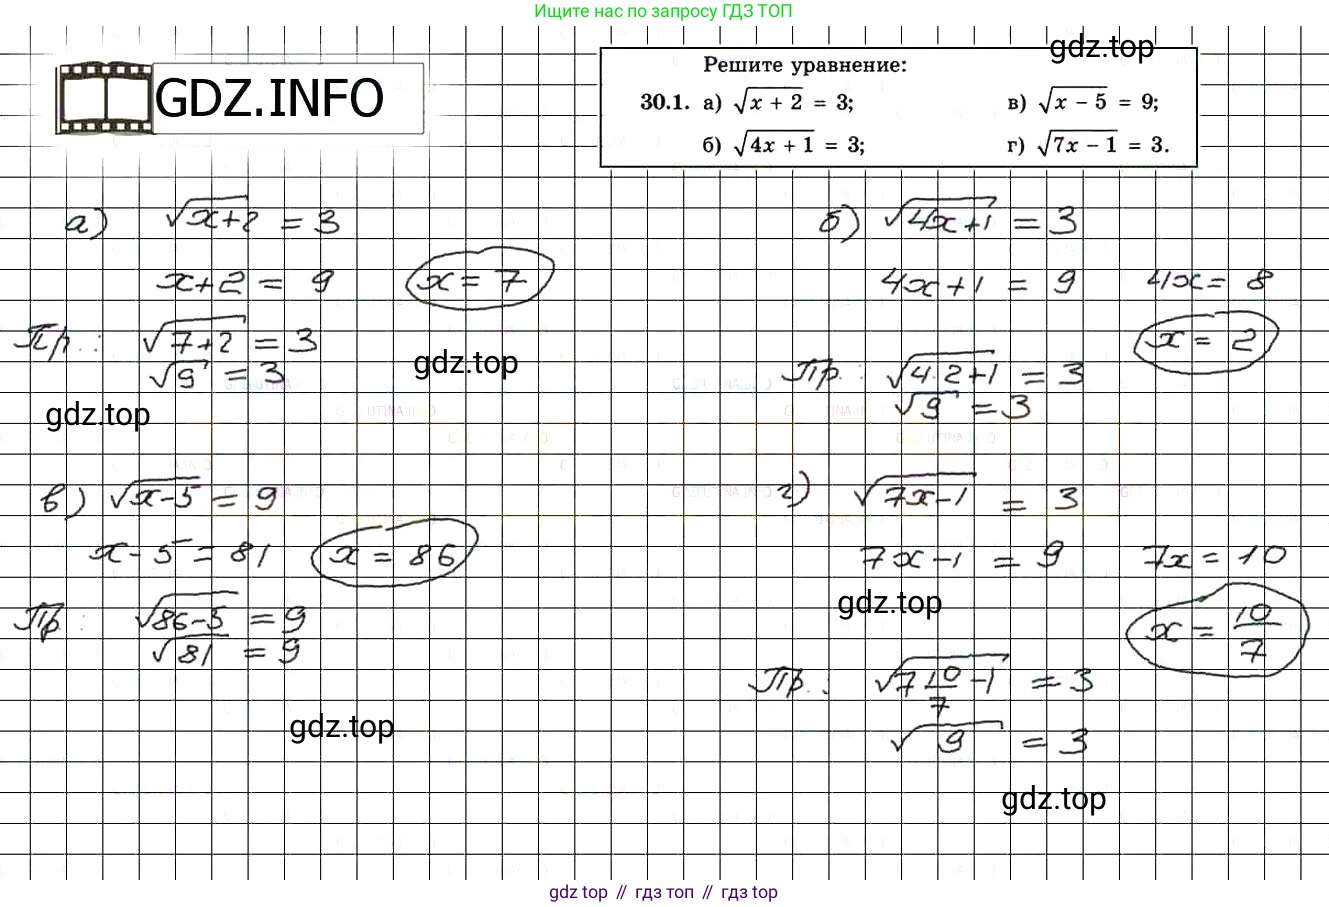 Ищите нас по запросу ГДЗ ТОП
GDZ.INFO
gdz.top
Решите уравнение:
30.1. а) √(x + 2) = 3; в) √(x − 5) = 9;
б) √(4x + 1) = 3; г) √(7x − 1) = 3.
а) √(x+2) = 3
x+2 = 9 x = 7
Пр.: √(7+2) = 3
√9 = 3
gdz.top
gdz.top
б) √(4x+1) = 3
4x+1 = 9 4x = 8
x = 2
Пр.: √(4·2+1) = 3
√9 = 3
в) √(x−5) = 9
x−5 = 81 x = 86
Пр: √(86−5) = 9
√81 = 9
gdz.top
г) √(7x−1) = 3
7x−1 = 9 7x = 10
gdz.top
x = 10/7
Пр.: √(7 10/7 −1) = 3
√9 = 3
gdz.top
gdz top // гдз топ // гдз top